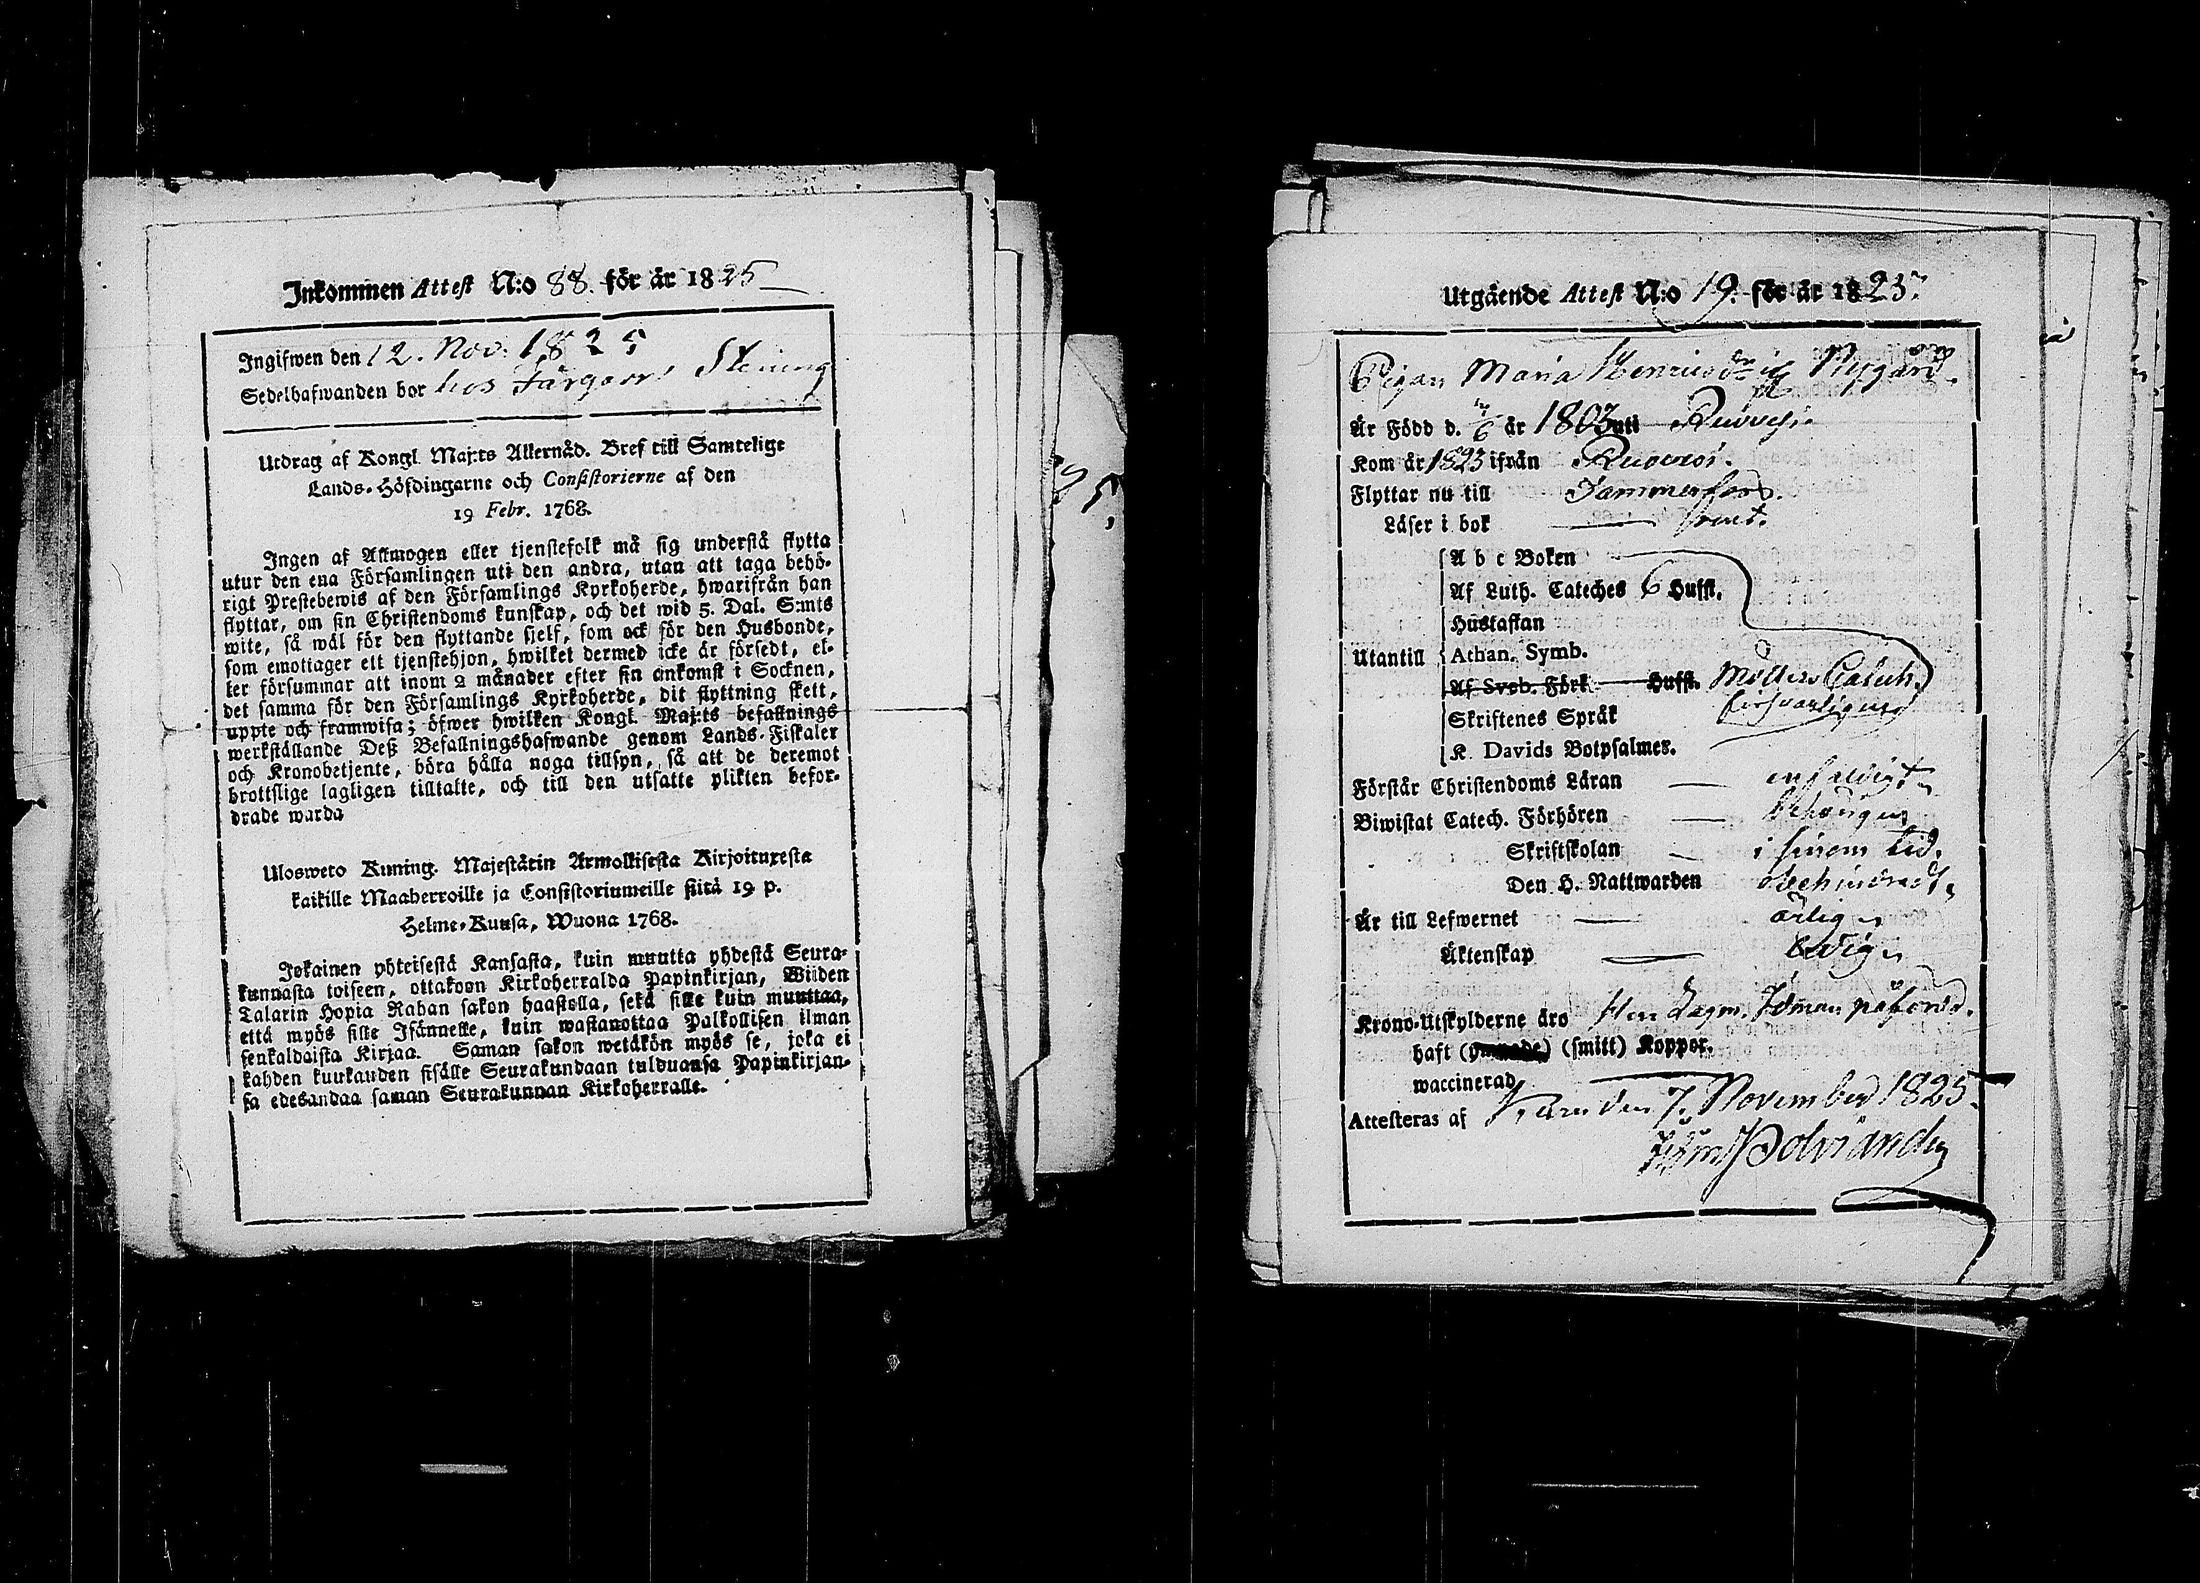 Inkommen Attest N:o 88. för år 1825
Ingifwen den 12. Nov. 1825
Sedelhafwanden bor hos Färgar Stening
Utdrag af Kongl. Maj:ts Allernåd. Bref till Samtelige
Lands-Höfdingarne och Consistorierne af den
19 Febr. 1768.
Ingen af Allmogen eller tjenstefolk må sig understå flytta
utur den ena Församlingen uti den andra, utan att taga behö-
rigt Prestebewis af den Församlings Kyrkoherde, hwarifrån han
flyttar, om sin Christendoms kunskap, och det wid 5. Dal. S:mts
wite, så wäl för den flyttande sjelf, som ock för den Husbonde,
som emottager ett tjenstehjon, hwilket dermed icke är försedt, el-
ler försummar att inom 2 månader efter sin ankomst i Socknen,
det samma för den Församlings Kyrkoherde, dit flyttning skett,
uppte och framwisa; öfwer hwilken Kongl. Maj:ts befallnings
werkställande Deß Befallningshafwande genom Lands-Fiskaler
och Kronobetjente, böra hålla noga tillsyn, så att de deremot
brottslige lagligen tilltalte, och till den utsatte plikten befor-
drade warda
Ulosweto Kuning. Majestätin Armollisesta Kirjoituxesta
kaikille Maaherroille ja Consistoriumeille siitä 19 p.
Helme-Kuusa, Wuona 1768.
Jokainen yhteisestä Kansasta, kuin muutta yhdestä Seura-
kunnasta toiseen, ottakoon Kirkoherralda Papinkirjan, Wiiden
Talarin Hopia Rahan sakon haastolla, sekä sille kuin muuttaa,
että myös sille Isännelle, kuin wastanottaa Palkollisen ilman
senkaldaista Kirjaa. Saman sakon wetäkön myös se, joka ei
kahden kuukauden sisälle Seurakundaan tulduansa Papinkirjan-
sa edesandaa saman Seurakunnan Kirkoherralle.
Utgående Attest N:o 19. för år 1825.
Pigan Maria Henricsdr if Nygård.
Är Född d. 17/6 år 1803 uti Ruovesi.
Kom år 1823 ifrån Ruovesi.
Flyttar nu till Tammerfors.
Läser i bok — svent.
A b c Boken
Af Luth. Cateches 6 Hufst.
Hustaflan
Utantill Athan. Symb.
Af Sveb. Förk. Hufst. Möllers Catech.
försvarligen
Skriftenes Språk
K. Davids Botpsalmer.
Förstår Christendoms Läran — enfaldigt
Biwistat Catech. Förhören — behörigen
Skriftskolan — i sinom tid.
Den H. Nattwarden obehindradt.
Är till Lefwernet — ärlig
Äktenskap — ledig
Krono-Utskylderne äro Herr Lagm. Idman påförd.
haft (ympade) (smitt) Koppor.
waccinerad
Attesteras af den 7. November 1825.